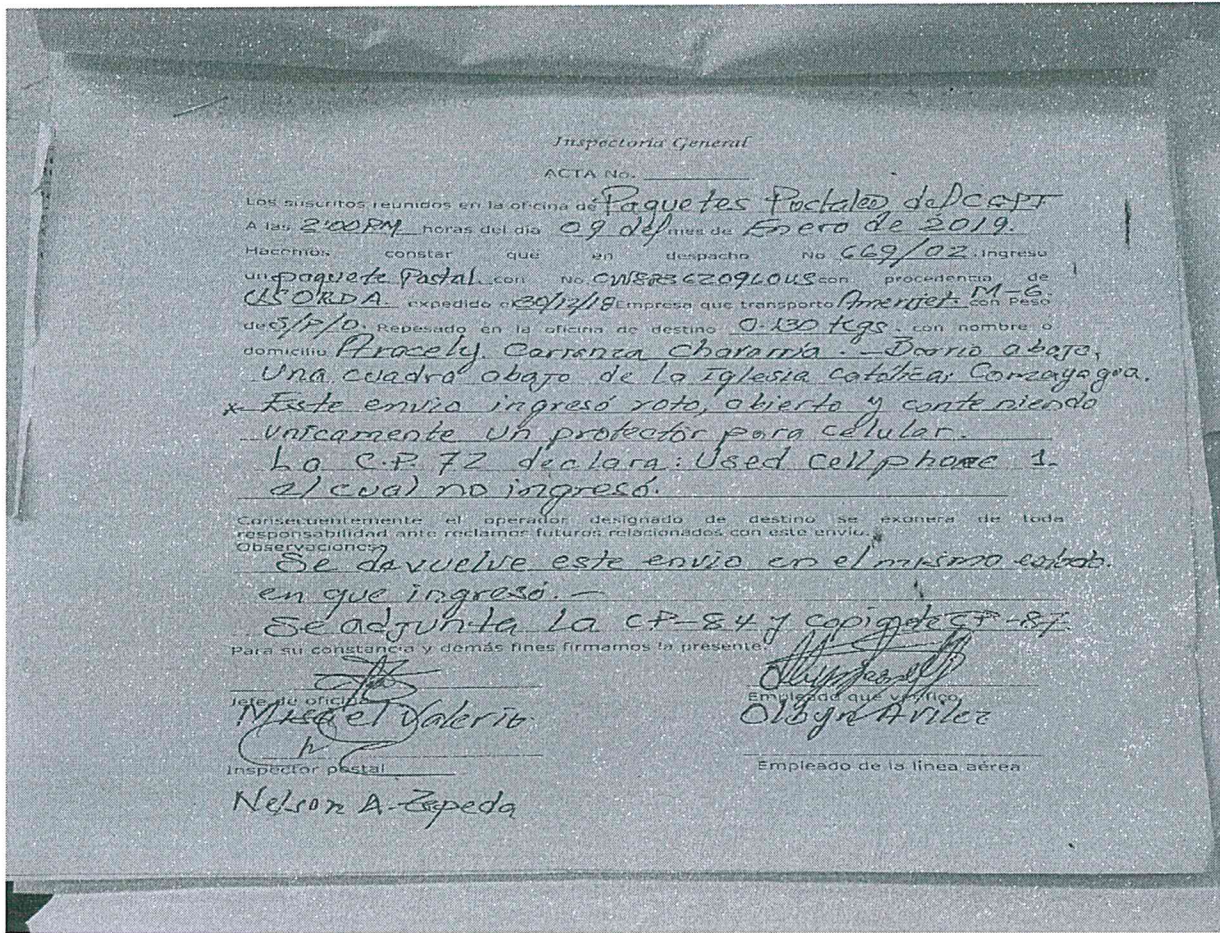 Inspectoria General
ACTA No.
Los suscritos reunidos en la oficina de Paquetes Postales del
A las 2:00 PM horas del día 09 del mes de Enero de 2019.
Hacemos constar que en despacho No 669/02. Ingreso
un paquete Postal con No. con procedentia de
USORDA expedido el 30/12/18 Empresa que transporto Amerijet. M-6. con Peso
de S/P/O. Repesado en la oficina de destino 0.130 Kgs. con nombre o
domicilio Aracely Carranza - Barrio abajo,
Una cuadra abajo de la Iglesia catolica, Comayagua.
x- Este envio ingresó roto, abierto y conteniendo
unicamente un protector para celular.
La C.P. 72 declara: Used Cellphone 1.
el cual no ingresó.
Consecuentemente el operador designado de destino se exonera de toda
responsabilidad ante reclamos futuros relacionados con este envio.
Observaciones
Se devuelve este envio en el mismo estado.
en que ingresó. -
Se adjunta La CP-84 y copia de CP-87
Para su constancia y demás fines firmamos la presente.
Jefe de oficina Empleado que verifico
Misael Valerio Olbyn Avilez
Inspector postal Empleado de la linea aérea
Nelson A. Zepeda